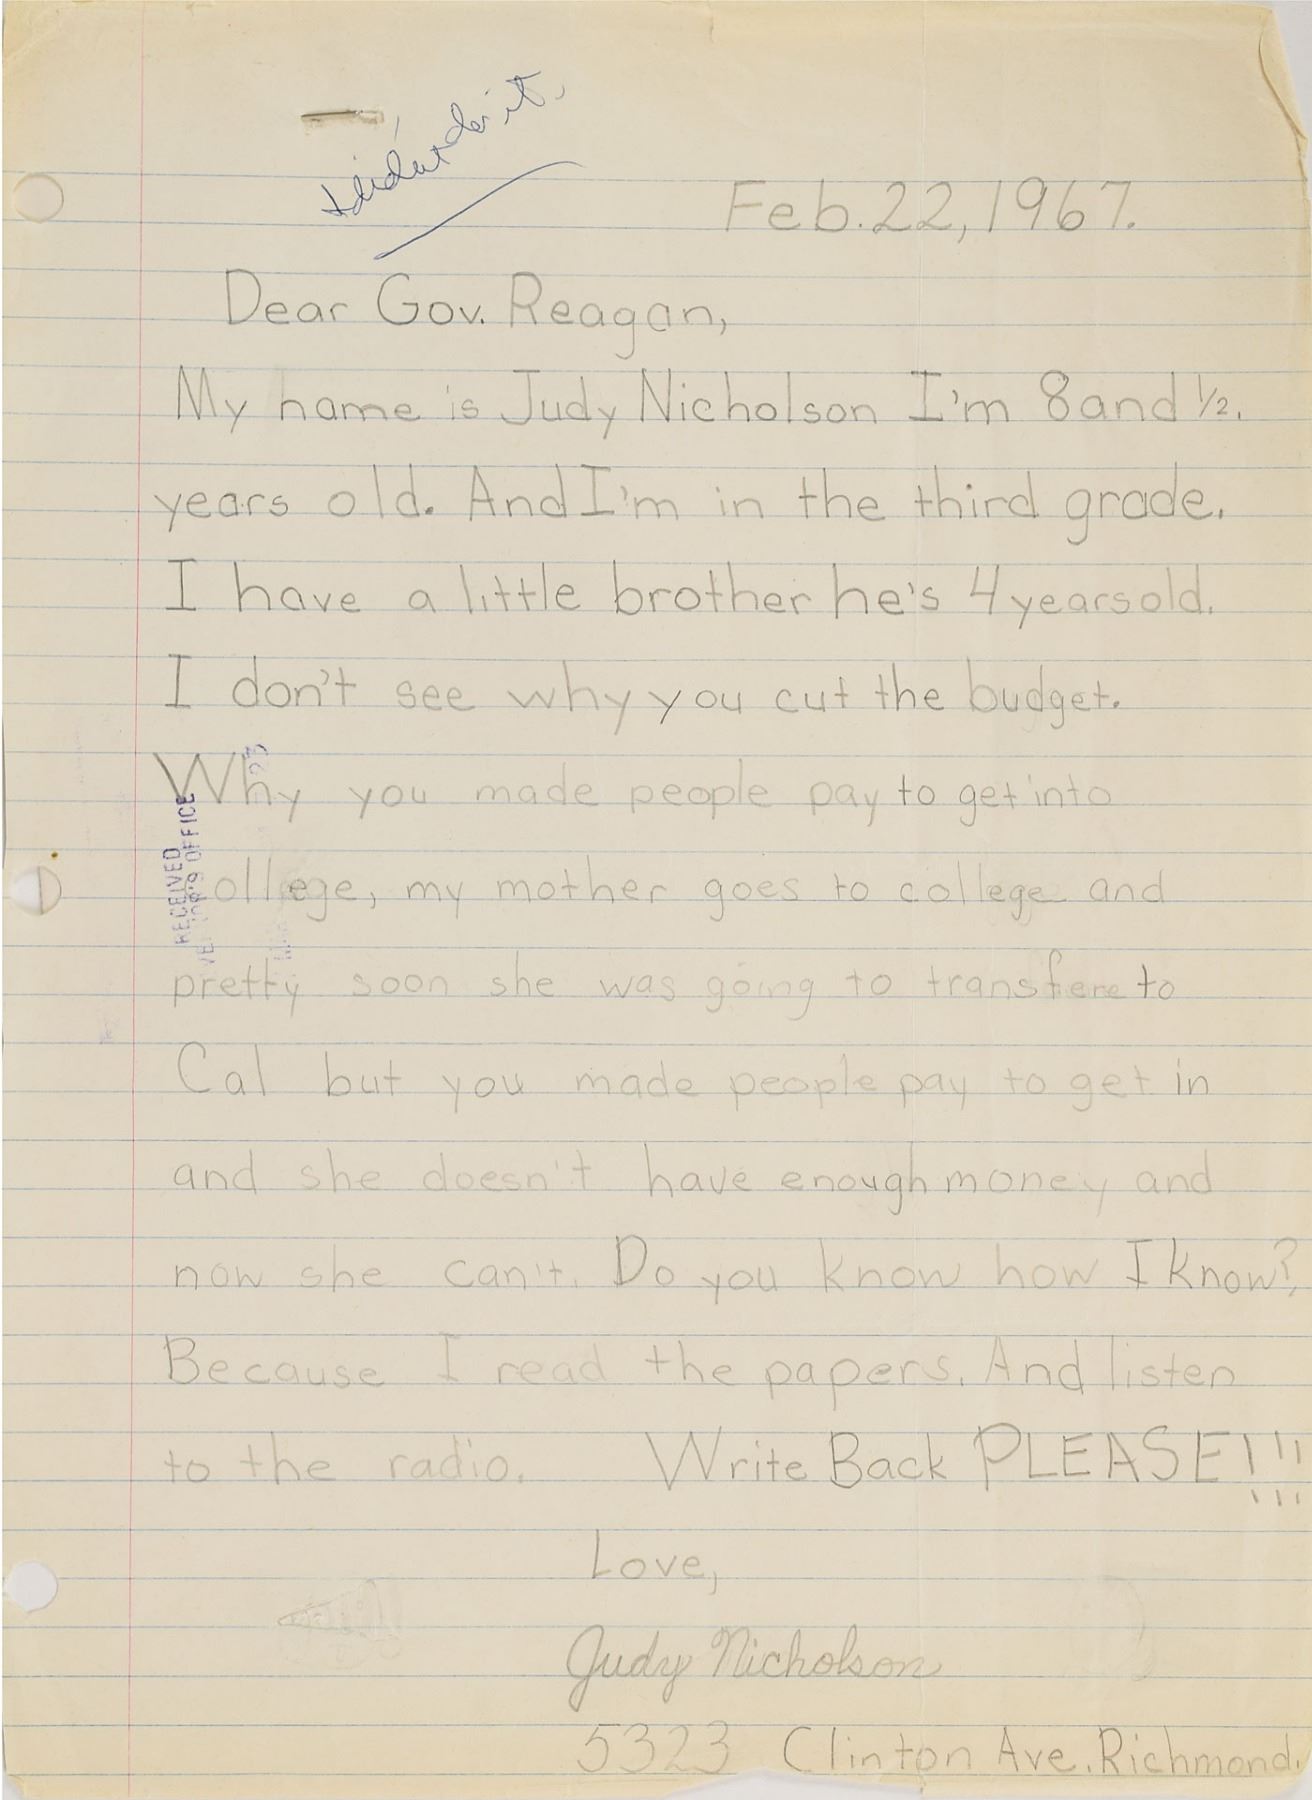 I didn't do it.
Feb. 22, 1967.
Dear Gov. Reagan,
My name is Judy Nicholson I'm 8 and 1/2.
years old. And I'm in the third grade.
I have a little brother he's 4 years old.
I don't see why you cut the budget.
Why you made people pay to get into
college, my mother goes to college and
pretty soon she was going to transfere to
Cal but you made people pay to get in
and she doesn't have enough money and
now she can't. Do you know how I know?
Because I read the papers. And listen
to the radio. Write Back PLEASE!!!
Love,
Judy Nicholson
5323 Clinton Ave. Richmond.
RECEIVED
OFFICE
23